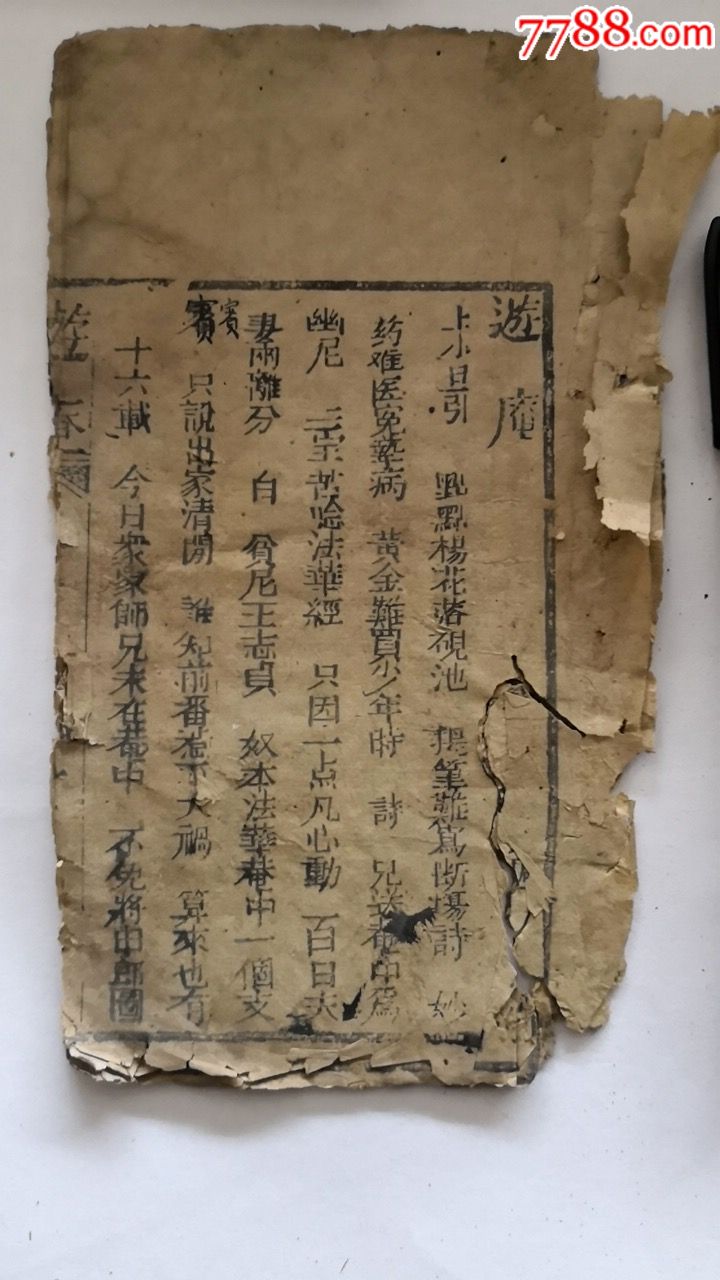 7788.com
遊庵
上小旦引 點點楊花落硯池 提筆難寫斷腸詩 妙
药难医冤孽病 黃金難買少年時 詩 兄送菴中爲
幽尼 三宗苦唸法華經 只因一点凡心動 百日夫
妻兩離分 白 貧尼王志貞 奴本法華菴中一個支
賓 只說出家清閒 誰知前番惹下大禍 算來也有
賓
十六載 今日衆家師兄未在菴中 不免將中郎圖
遊